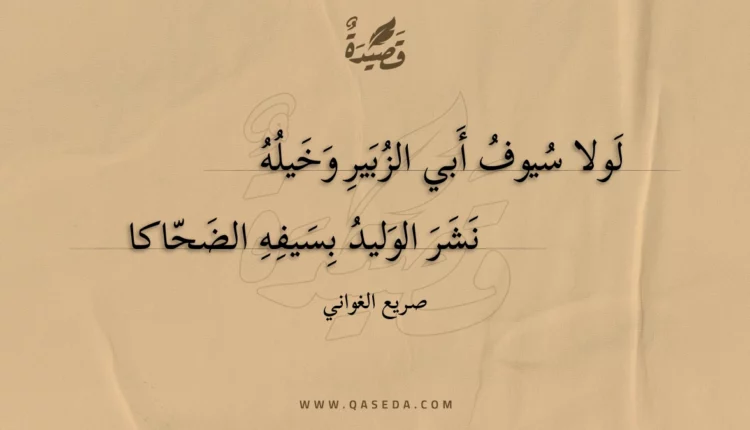 قَصِيْدَةٌ
لَولا سُيوفُ أَبي الزُبَيرِ وَخَيلُهُ
نَشَرَ الوَليدُ بِسَيفِهِ الضَحّاكا
صريع الغواني
WWW.QASEDA.COM